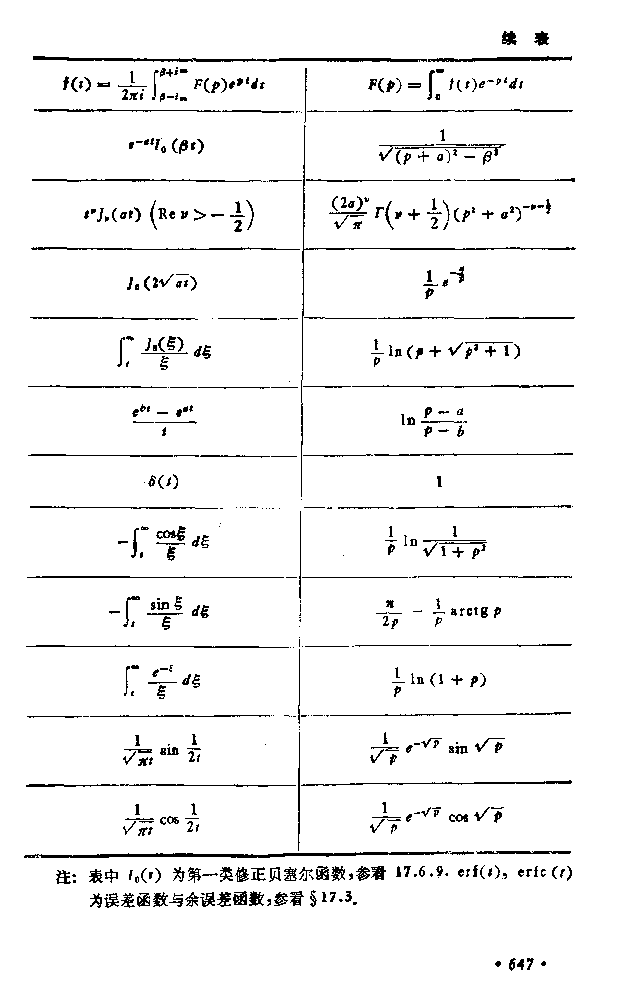 续 表
f(t) = \frac{1}{2πi} \int_{β-i∞}^{β+i∞} F(p)e^{pt}dt    F(p) = \int_0^∞ f(t)e^{-pt}dt
e^{-at}I_0(βt)    \frac{1}{\sqrt{(p+a)^2-β^2}}
t^ν J_ν(at) (Re ν > -\frac{1}{2})    \frac{(2a)^ν}{\sqrt{π}} Γ(ν + \frac{1}{2})(p^2 + a^2)^{-ν-\frac{1}{2}}
J_0(2\sqrt{at})    \frac{1}{p} e^{-\frac{a}{p}}
\int_t^∞ \frac{J_0(ξ)}{ξ} dξ    \frac{1}{p} ln(p + \sqrt{p^2+1})
\frac{e^{bt} - e^{at}}{t}    ln \frac{p-a}{p-b}
δ(t)    1
-\int_t^∞ \frac{cosξ}{ξ} dξ    \frac{1}{p} ln \frac{1}{\sqrt{1+p^2}}
-\int_t^∞ \frac{sin ξ}{ξ} dξ    \frac{π}{2p} - \frac{1}{p} arctg p
\int_t^∞ \frac{e^{-ξ}}{ξ} dξ    \frac{1}{p} ln(1+p)
\frac{1}{\sqrt{πt}} sin \frac{1}{2t}    \frac{1}{\sqrt{p}} e^{-\sqrt{p}} sin \sqrt{p}
\frac{1}{\sqrt{πt}} cos \frac{1}{2t}    \frac{1}{\sqrt{p}} e^{-\sqrt{p}} cos \sqrt{p}
注: 表中 I_0(t) 为第一类修正贝塞尔函数,参看 17.6.9. erf(t), erfc(t)
为误差函数与余误差函数,参看 §17.3.
• 647 •